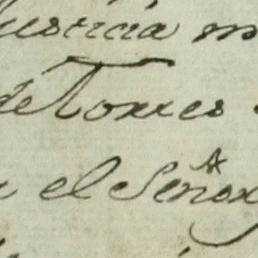 Justicia m
de Torres
el Señor